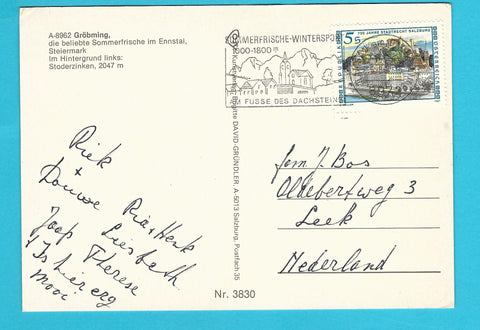 A-8962 Gröbming,
die beliebte Sommerfrische im Ennstal,
Steiermark
Im Hintergrund links:
Stoderzinken, 2047 m
SOMMERFRISCHE-WINTERSPORT
800-1800 m
AM FUSSE DES DACHSTEIN
700 JAHRE STADTRECHT SALZBURG
5 S
REPUBLIK ÖSTERREICH
Rick
+
Douwe
Ria+Henk
Liesbeth
Joop Therese
't Is hier erg
mooi
Fam J. Bos
Oldebertweg 3
Leek
Nederland
Brigitte DAVID-GRÜNDLER, A-5013 Salzburg, Postfach 35
Nr. 3830